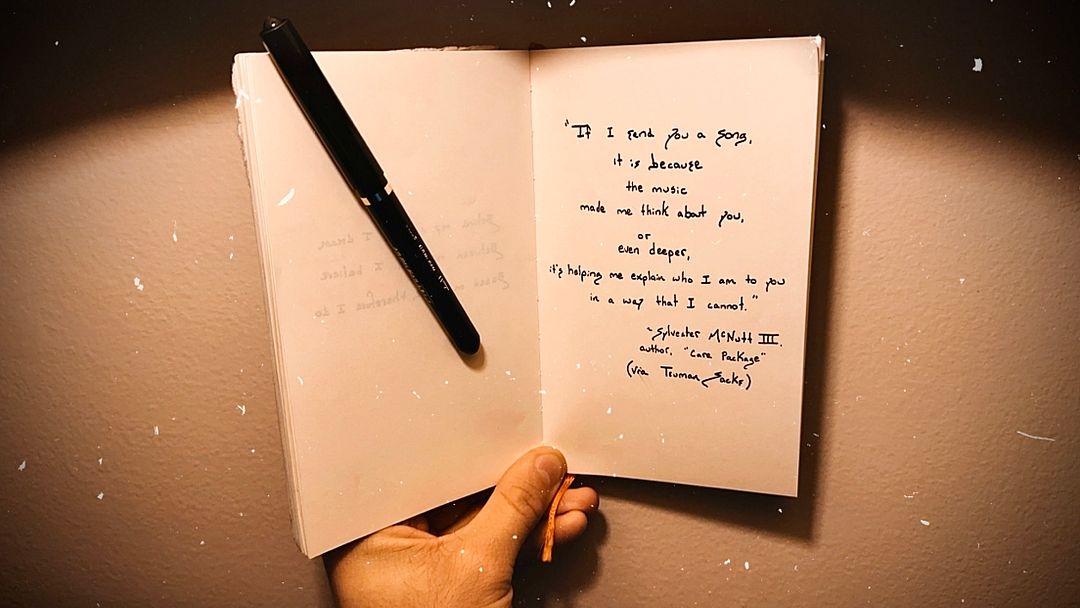 "If I send you a song,
it is because
the music
made me think about you,
or
even deeper,
it's helping me explain who I am to you
in a way that I cannot."
~Sylvester McNutt III.
author, "Care Package"
(via Truman Sacks)
I dream
Between
I believe
therefore I do